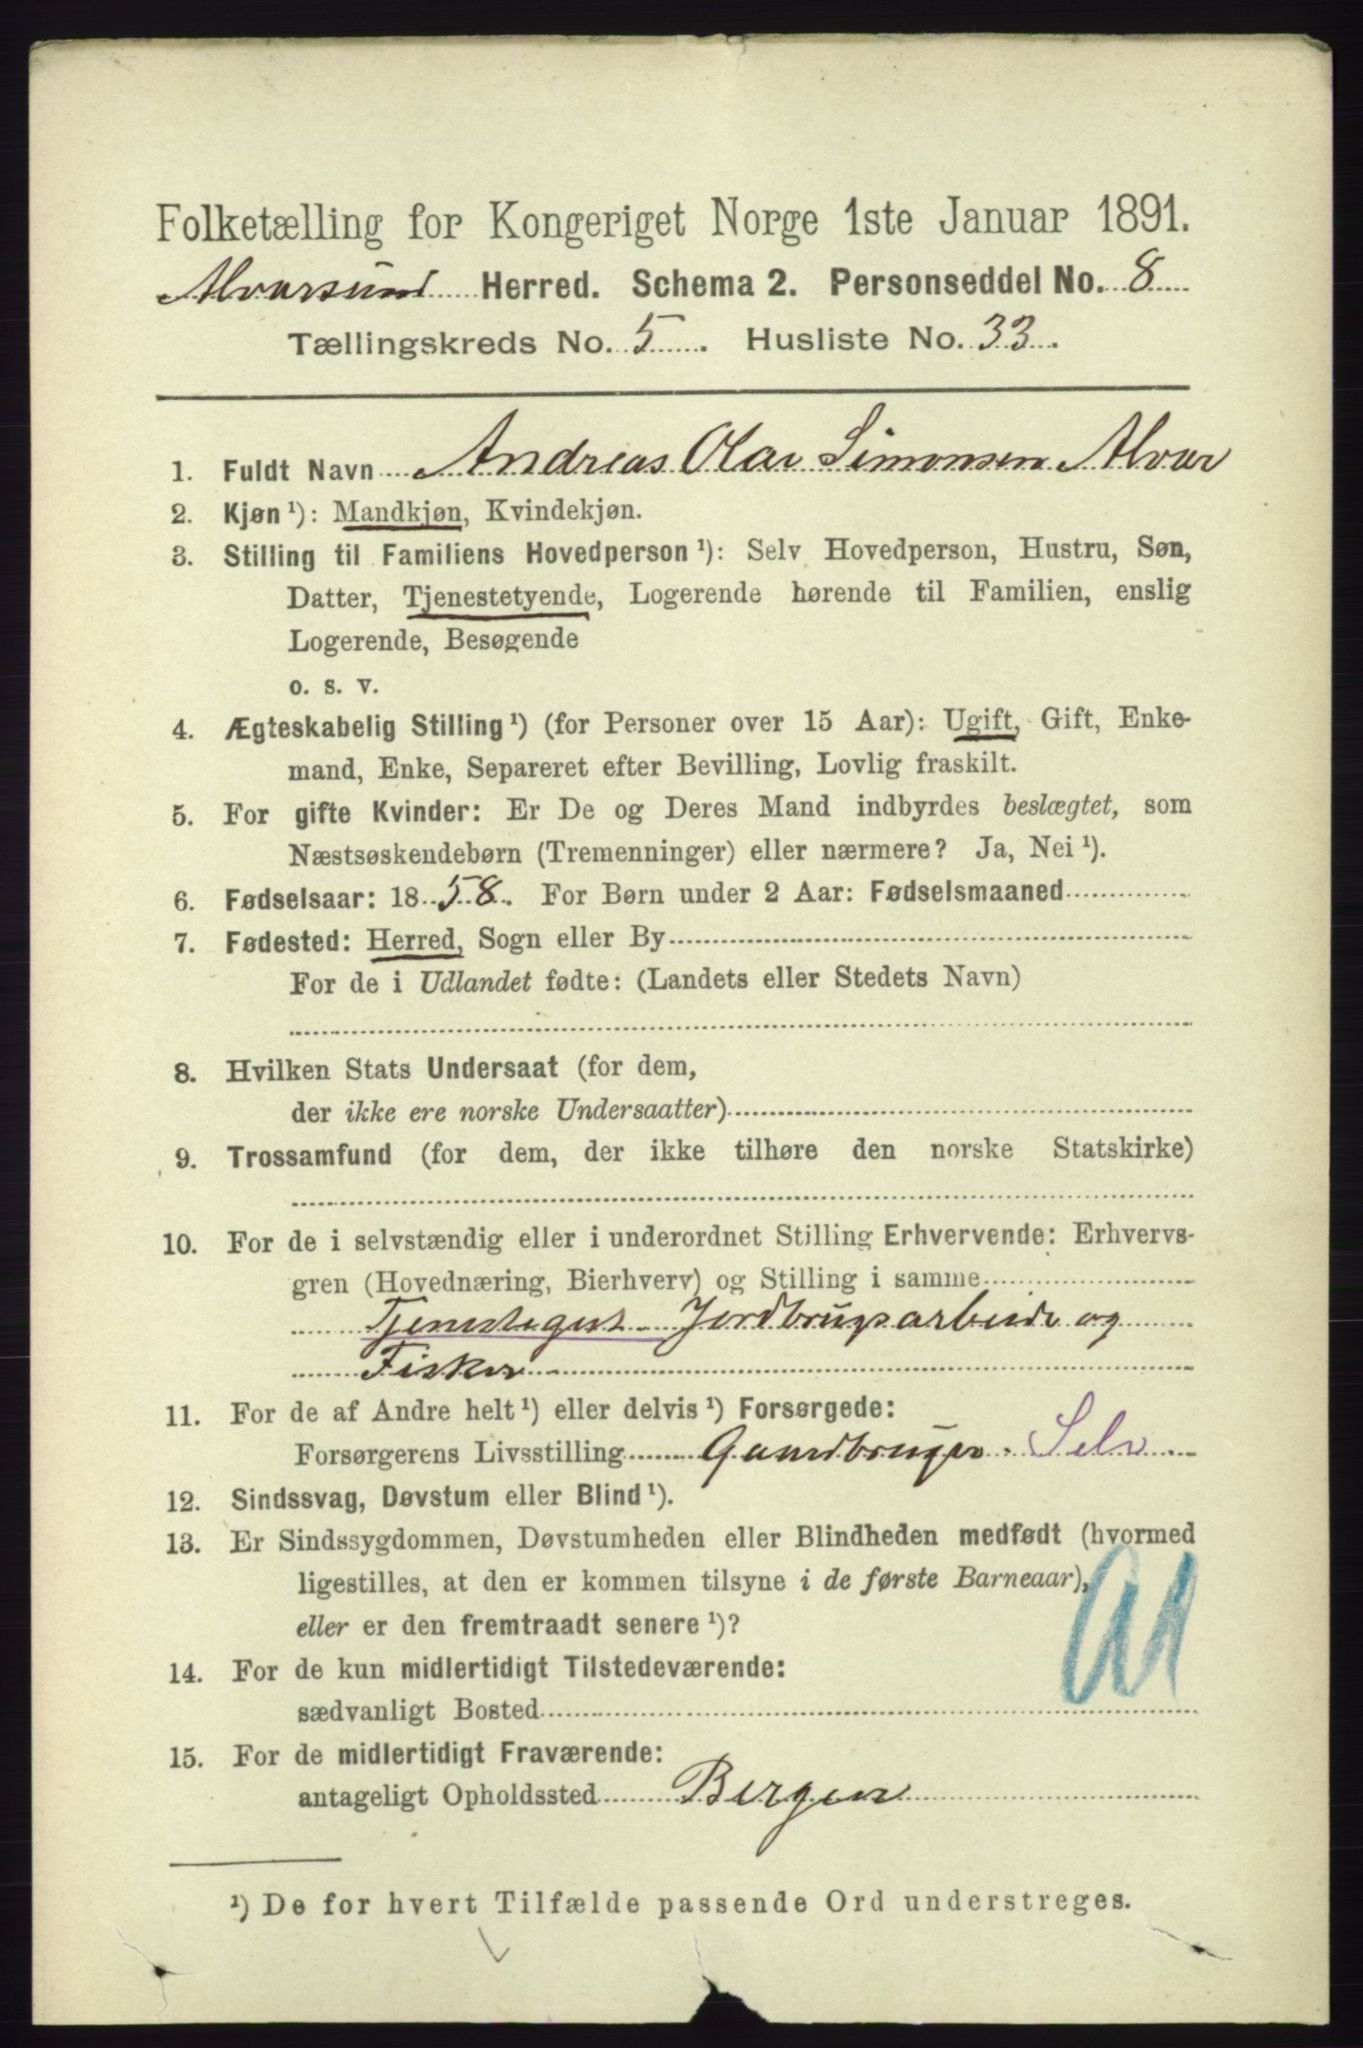 Folketælling for Kongeriget Norge 1ste Januar 1891.
Alvarsund Herred. Schema 2. Personseddel No. 8
Tællingskreds No. 5. Husliste No. 33.
1. Fuldt Navn Andreas Olai Simonsen Alvær
2. Kjøn ¹): Mandkjøn, Kvindekjøn.
3. Stilling til Familiens Hovedperson ¹): Selv Hovedperson, Hustru, Søn,
Datter, Tjenestetyende, Logerende hørende til Familien, enslig
Logerende, Besøgende
o. s. v.
4. Ægteskabelig Stilling ¹) (for Personer over 15 Aar): Ugift, Gift, Enke-
mand, Enke, Separeret efter Bevilling, Lovlig fraskilt.
5. For gifte Kvinder: Er De og Deres Mand indbyrdes beslægtet, som
Næstsøskendebørn (Tremenninger) eller nærmere? Ja, Nei ¹).
6. Fødselsaar: 1858. For Børn under 2 Aar: Fødselsmaaned
7. Fødested: Herred, Sogn eller By
For de i Udlandet fødte: (Landets eller Stedets Navn)
8. Hvilken Stats Undersaat (for dem,
der ikke ere norske Undersaatter)
9. Trossamfund (for dem, der ikke tilhøre den norske Statskirke)
10. For de i selvstændig eller i underordnet Stilling Erhvervende: Erhvervs-
gren (Hovednæring, Bierhverv) og Stilling i samme
Tjenestegut Jordbrugsarbeide og
Fisker
11. For de af Andre helt ¹) eller delvis ¹) Forsørgede:
Forsørgerens Livsstilling Gaardbruger. Selv
12. Sindssvag, Døvstum eller Blind ¹).
13. Er Sindssygdommen, Døvstumheden eller Blindheden medfødt (hvormed
ligestilles, at den er kommen tilsyne i de første Barneaar),
eller er den fremtraadt senere ¹)?
14. For de kun midlertidigt Tilstedeværende:
sædvanligt Bosted
15. For de midlertidigt Fraværende:
antageligt Opholdssted Bergen
¹) De for hvert Tilfælde passende Ord understreges.